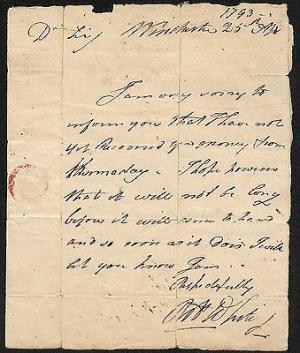 1793
Dr Sir Winchester 25th
I am very sorry to
inform you that I have not
yet Received your money from
I hope however
that it will not be long
before it will come to hand
and so soon as it dois I will
let you know I am
Respectfully
White